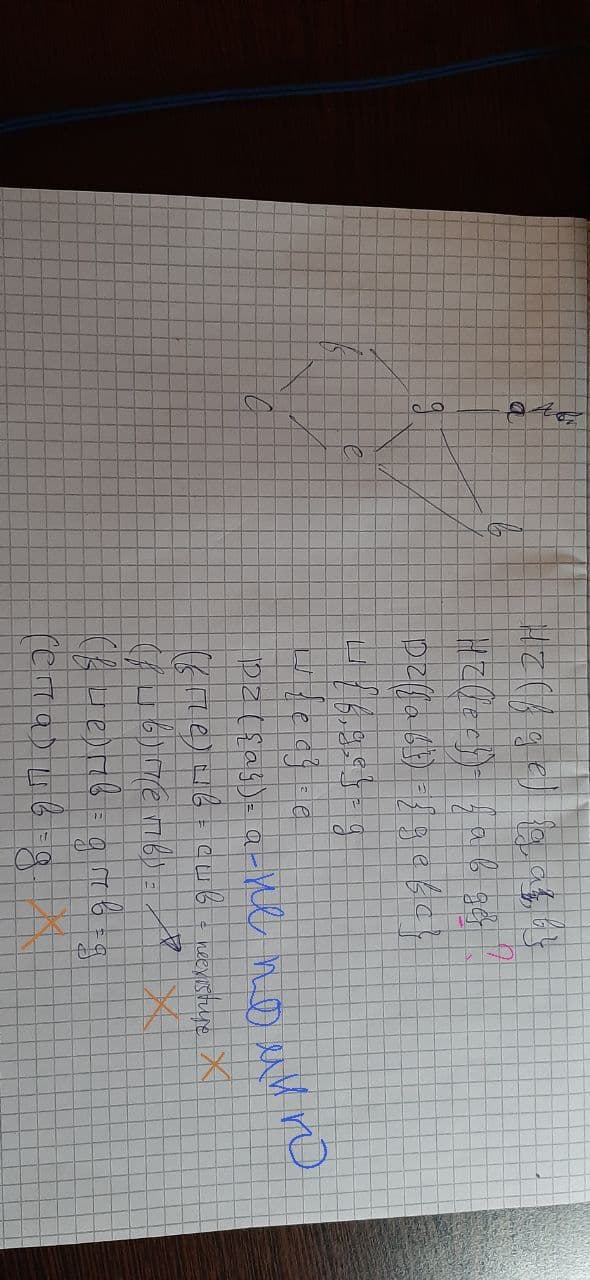 a
b
g
f
e
c
HZ(f g e) {g, a, b}
HZ({e c}) = {a b g e} ?
DZ({a b}) = {g e f c}
⊔ {f, g, e} = g
⊔ {e c} = e
DZ({a}) = a - не помню
(f ⊓ e) ⊔ b = c ⊔ b = neexistuje ×
(f ⊔ b) ⊓ (e ⊓ b) = ×
(f ⊔ e) ⊓ b = g ⊓ b = g
(c ⊓ a) ⊔ b = g ×